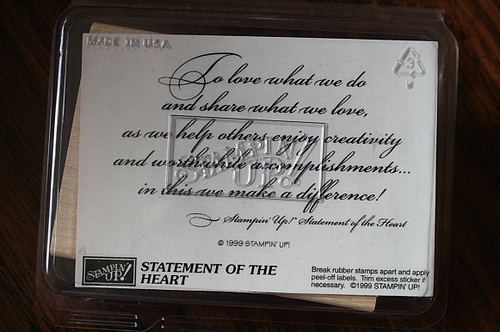 MADE IN USA
To love what we do
and share what we love,
as we help others enjoy creativity
and worthwhile accomplishments...
in this we make a difference!
Stampin' Up!® Statement of the Heart
© 1999 STAMPIN' UP!
STAMPIN' UP!
STAMPIN' UP!
STATEMENT OF THE HEART
Break rubber stamps apart and apply
peel-off labels. Trim excess sticker if
necessary. ©1999 STAMPIN' UP!